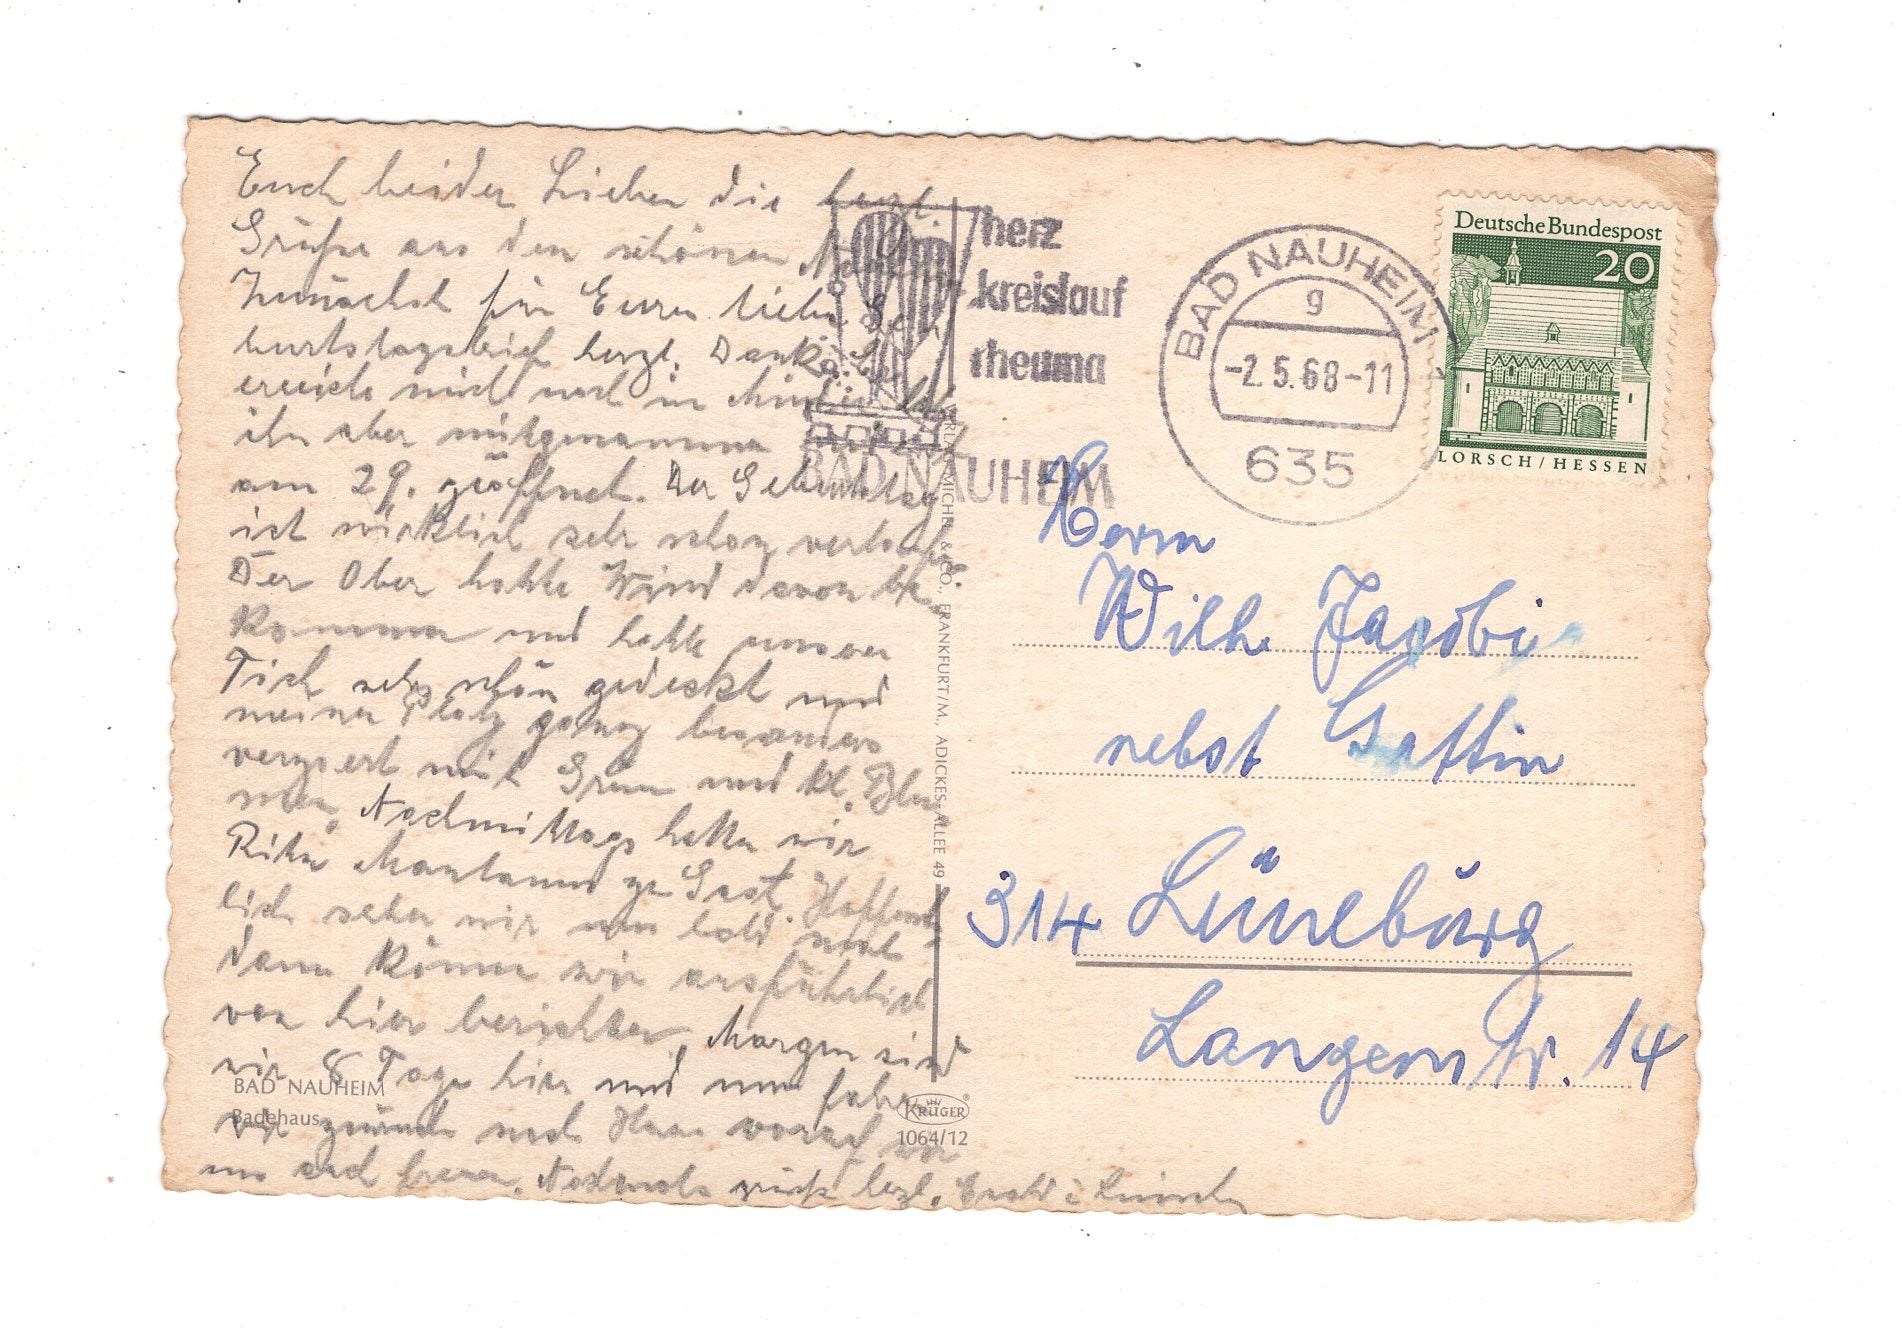 Euch beiden Lieben die herzl.
Grüße aus dem schönen
Zunächst für Euren lieben Ge-
burtstagsbrief herzl. Dank.
erreichte mich noch in
ihn aber mitgenommen
am 29. geöffnet. Der Geburtstag
ist wirklich sehr schön verlaufen.
Der Ober hatte Wind davon be-
kommen und hatte unseren
Tisch sehr schön gedeckt und
meinen Platz ganz besonders
verziert mit Grün und kl. Blu-
men. Nachmittags hatten wir
zu Gast. Hoffent-
lich sehen wir uns bald mal
dann können wir ausführlich
von hier berichten. Morgen sind
wir 8 Tage hier und nun fahren
wir zurück nach Haus worauf wir
uns auch freuen. Nochmals
BAD NAUHEIM
Badehaus
VERLAG MICHEL & CO., FRANKFURT/M., ADICKES-ALLEE 49
KRÜGER
1064/12
herz
kreislauf
rheuma
BAD NAUHEIM
BAD NAUHEIM
g
-2.5.68-11
635
Deutsche Bundespost
20
LORSCH/HESSEN
Herrn
Wilh. Jacobi
nebst Gattin
314 Lüneburg
Langenstr. 14